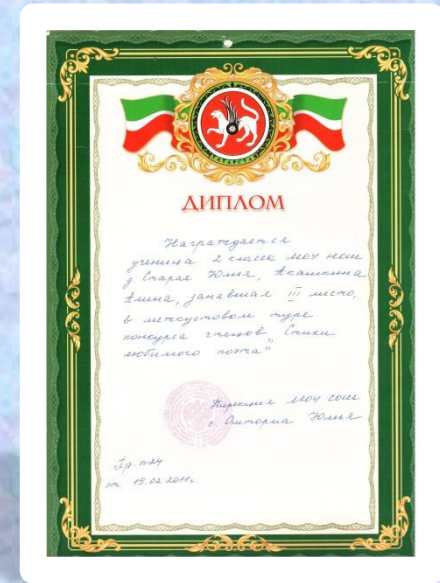 ТАТАРСТАН
ДИПЛОМ
Награждается
ученица 2 класса МОУ НОШ
д. Старая Юмья, Акашкина
Алина, занявшая III место,
в межкустовом туре
конкурса чтецов "Стихи
любимого поэта"
Дирекция МОУ СОШ
с. Олторма Юмья
Пр. №24
от 19.02.2011г.